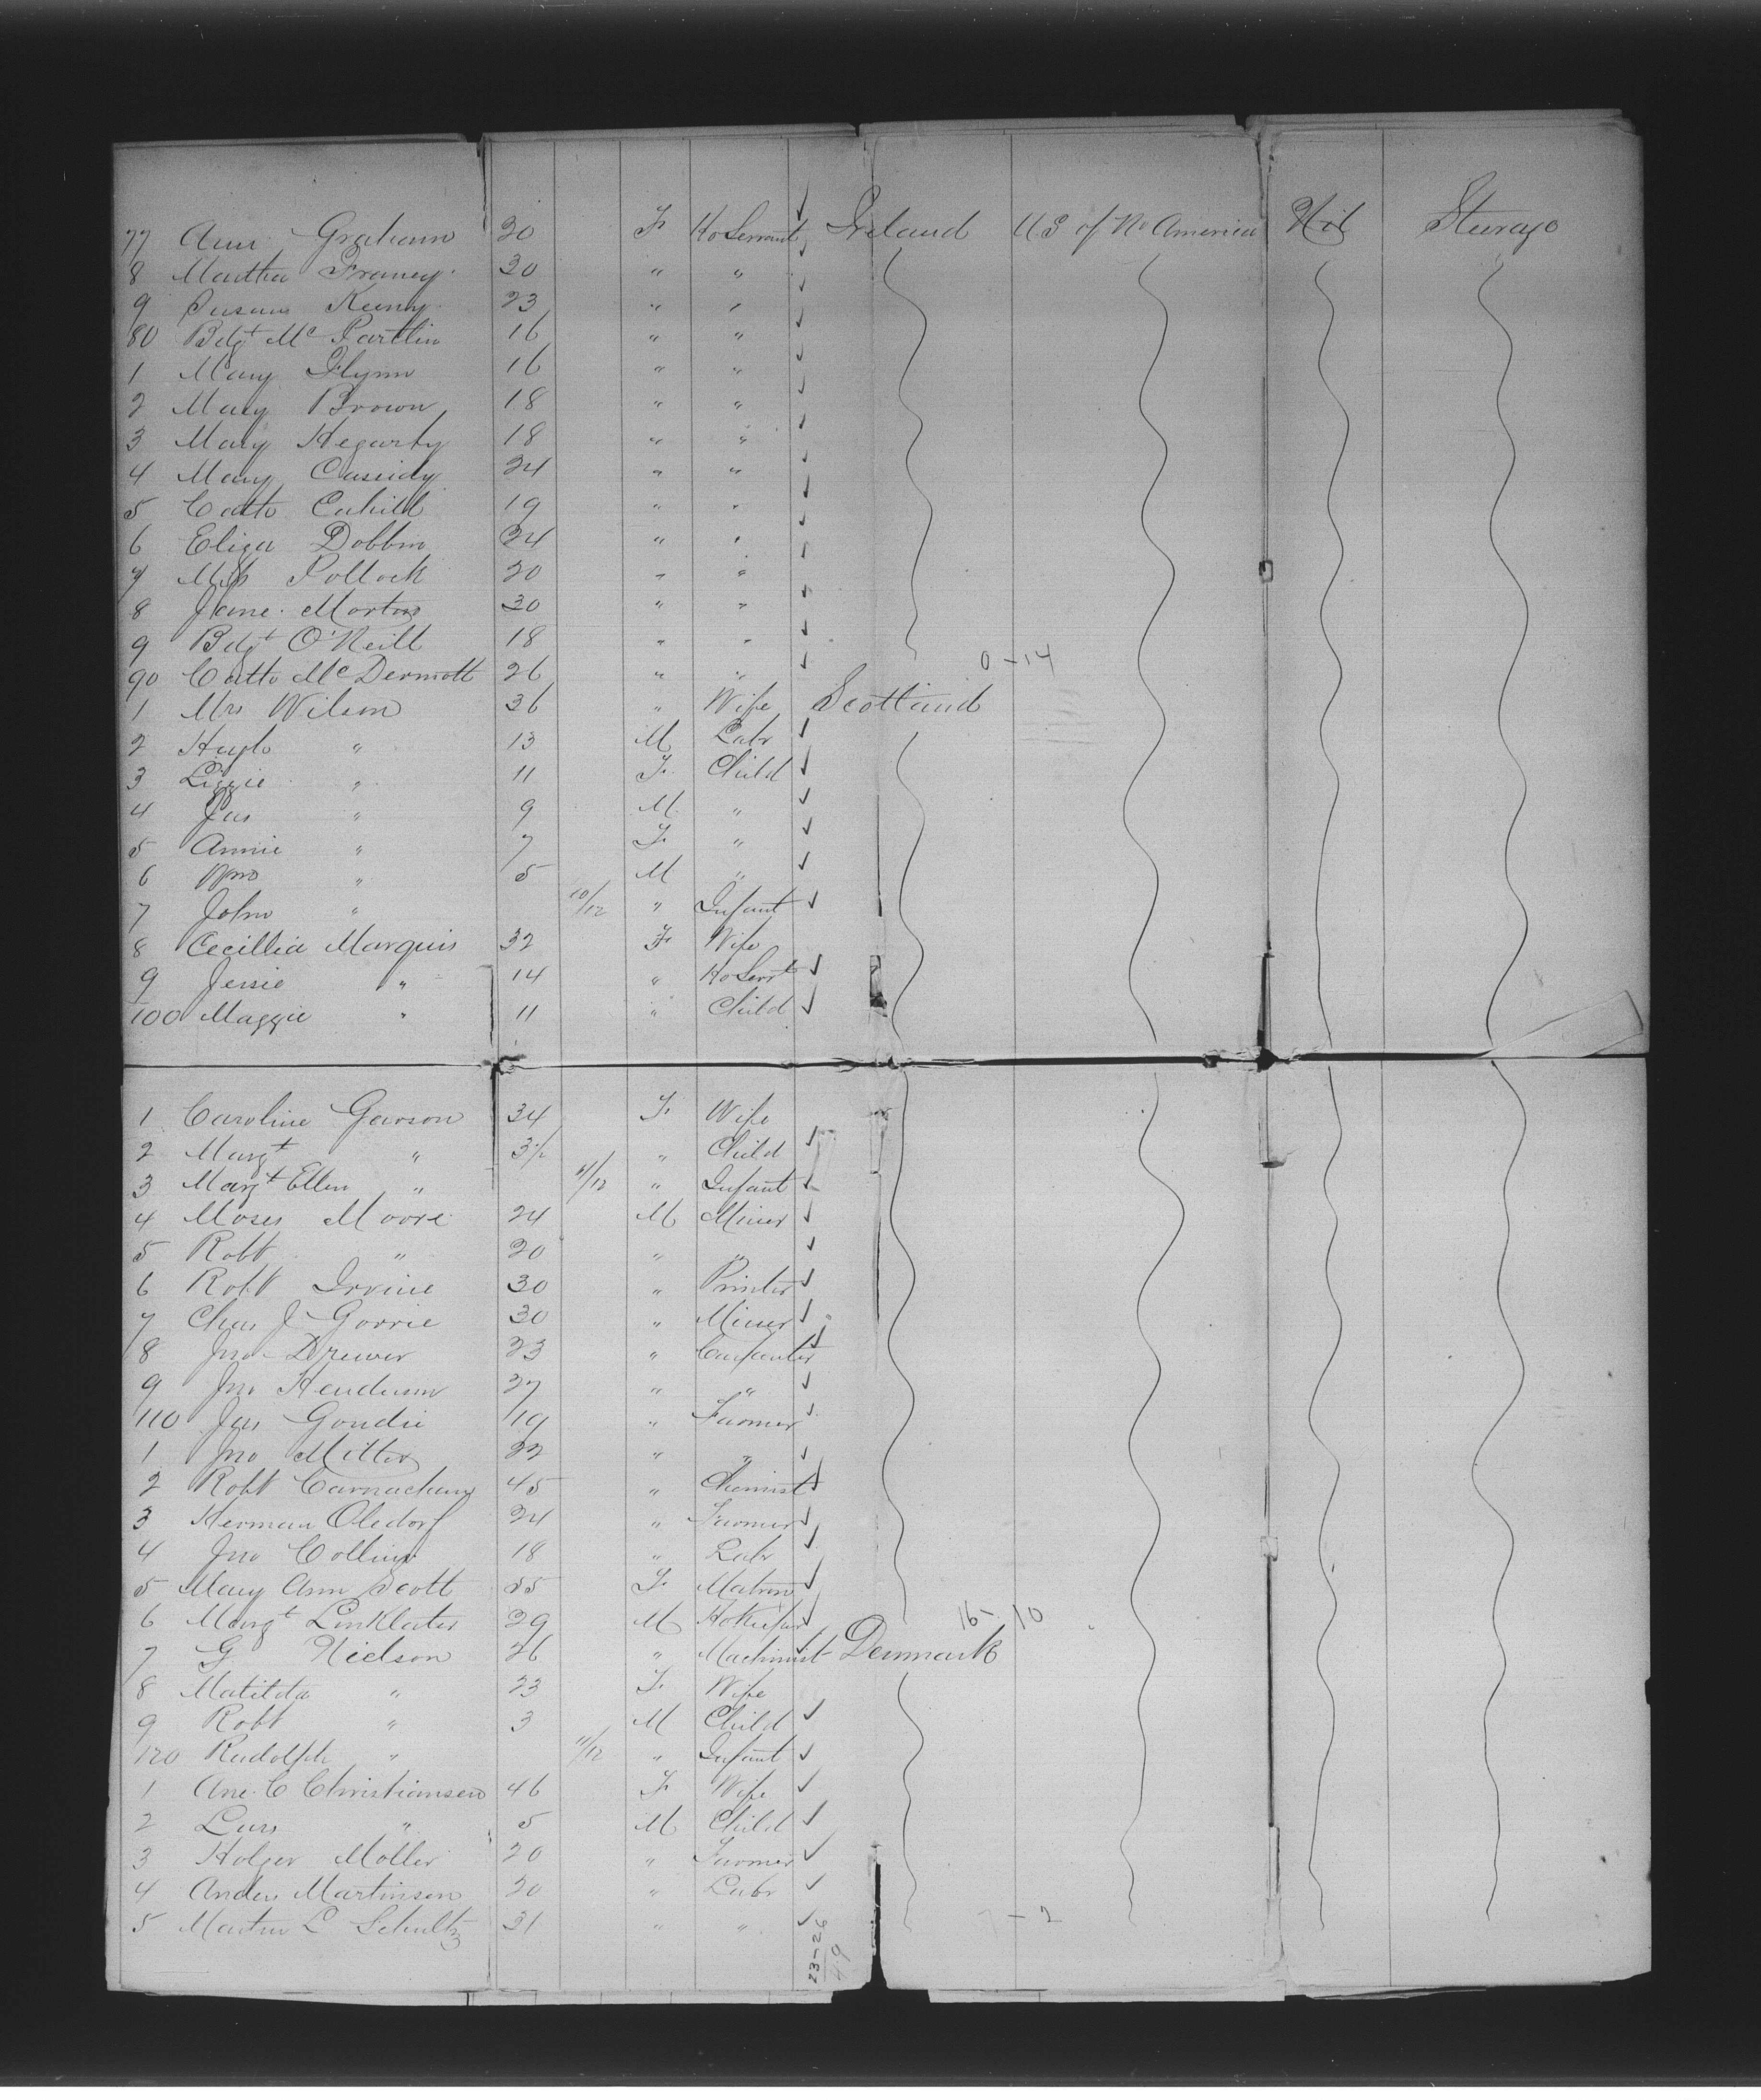 77 Ann Graham 20 F Ho Servant ✓ Ireland U S of No America Nil Steerage
8 Martha Franey 30 " " ✓
9 Susan Keeny 23 " " ✓
80 Bdgt McPartlin 16 " " ✓
1 Mary Flynn 16 " " ✓
2 Mary Brown 18 " " ✓
3 Mary Hegarty 18 " " ✓
4 Mary Cassidy 24 " " ✓
5 Cath Cahill 19 " " ✓
6 Eliza Dobbin 24 " " ✓
7 Pollock 20 " " ✓
8 Jane Morton 30 " " ✓
9 Bdgt O'Neill 18 " " ✓
90 Cath McDermott 26 " " ✓ 0-14
1 Mrs Wilson 36 " Wife Scotland
2 Hugh " 13 M Labr ✓
3 Lizzie " 11 F Child ✓
4 Jas " 9 M " ✓
5 Annie " 7 F " ✓
6 Wm " 5 M " ✓
7 John " 10/12 " Infant ✓
8 Cecillia Marquis 32 F Wife
9 Jessie " 14 " Ho Servt ✓
100 Maggie " 11 " Child ✓
1 Caroline Garson 34 F Wife
2 Margt " 3½ " Child ✓
3 Margt Ellen " 11/12 " Infant ✓
4 Moses Moore 24 M Miner ✓
5 Robt " 20 " " ✓
6 Robt Irvine 30 " Printer ✓
7 Chas J Gorrie 30 " Miner ✓
8 Jno Drewer 23 " Carpenter ✓
9 Jno Henderson 27 " " ✓
110 Jas Goudie 19 " Farmer ✓
1 Jno Miller 22 " " ✓
2 Robt Carnachan 45 " Chemist ✓
3 Herman Oledorf 24 " Farmer ✓
4 Jno Collins 18 " Labr ✓
5 Mary Ann Scott 55 F Matron ✓
6 Margt Linklater 29 M Ho Keeper ✓ 16-10
7 G Nielson 26 " Machinist ✓ Denmark
8 Matilda " 23 F Wife
9 Robt " 3 M Child ✓
120 Rudolph " 11/12 " Infant ✓
1 Ane C Christiansen 46 F Wife ✓
2 Lars " 5 M Child ✓
3 Holger Moller 20 " Farmer ✓
4 Anders Martinsen 20 " Labr ✓
5 Martin L Schultz 31 " " ✓ 7-2
23-26
49